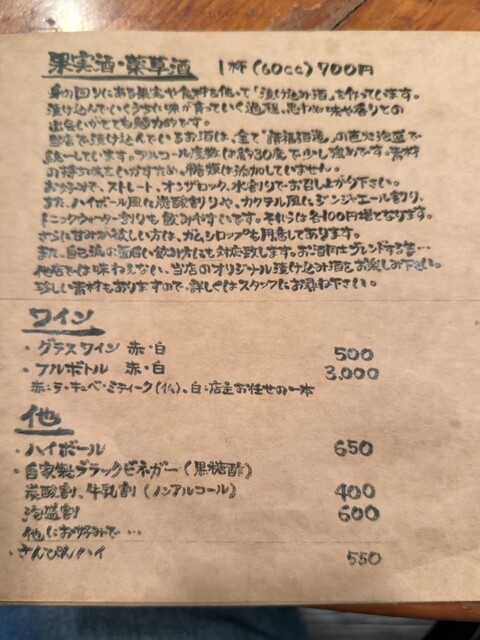 果実酒・薬草酒 1杯(60cc)700円
身の回りにある果実や食材を使って「漬け込み酒」を作っています。
漬け込んでいくうちに味が育っていく過程、思わぬ味や香りとの
出会いがとても魅力的です。
当店で漬け込んでいるお酒は、全て"請福酒造"の直火泡盛で
統一しています。アルコール度数は約30度で少し強めです。素材
の持ち味をいかすため、糖類は添加していません。
お好みで、ストレート、オンザロック、水割りでお召し上がり下さい。
また、ハイボール風に炭酸割りや、カクテル風にジンジャエール割り、
トニックウォーター割りも飲みやすいです。それらは各100円増となります。
さらに甘みが欲しい方は、ガムシロップも用意してあります。
また、自己流の面白い飲み方にも対応致します。お酒同士ブレンドする等…
他店では味わえない、当店のオリジナル漬け込み酒をお楽しみ下さい。
珍しい素材もありますので、詳しくはスタッフにお尋ね下さい。
ワイン
・グラスワイン 赤・白 500
・フルボトル 赤・白 3,000
赤:ラ・キュベ・ミティーク(仏)、白:店主お任せの一本
他
・ハイボール 650
・自家製ブラックビネガー(黒糖酢)
炭酸割、牛乳割(ノンアルコール) 400
泡盛割 600
他にお好みで…
・さんぴんハイ 550